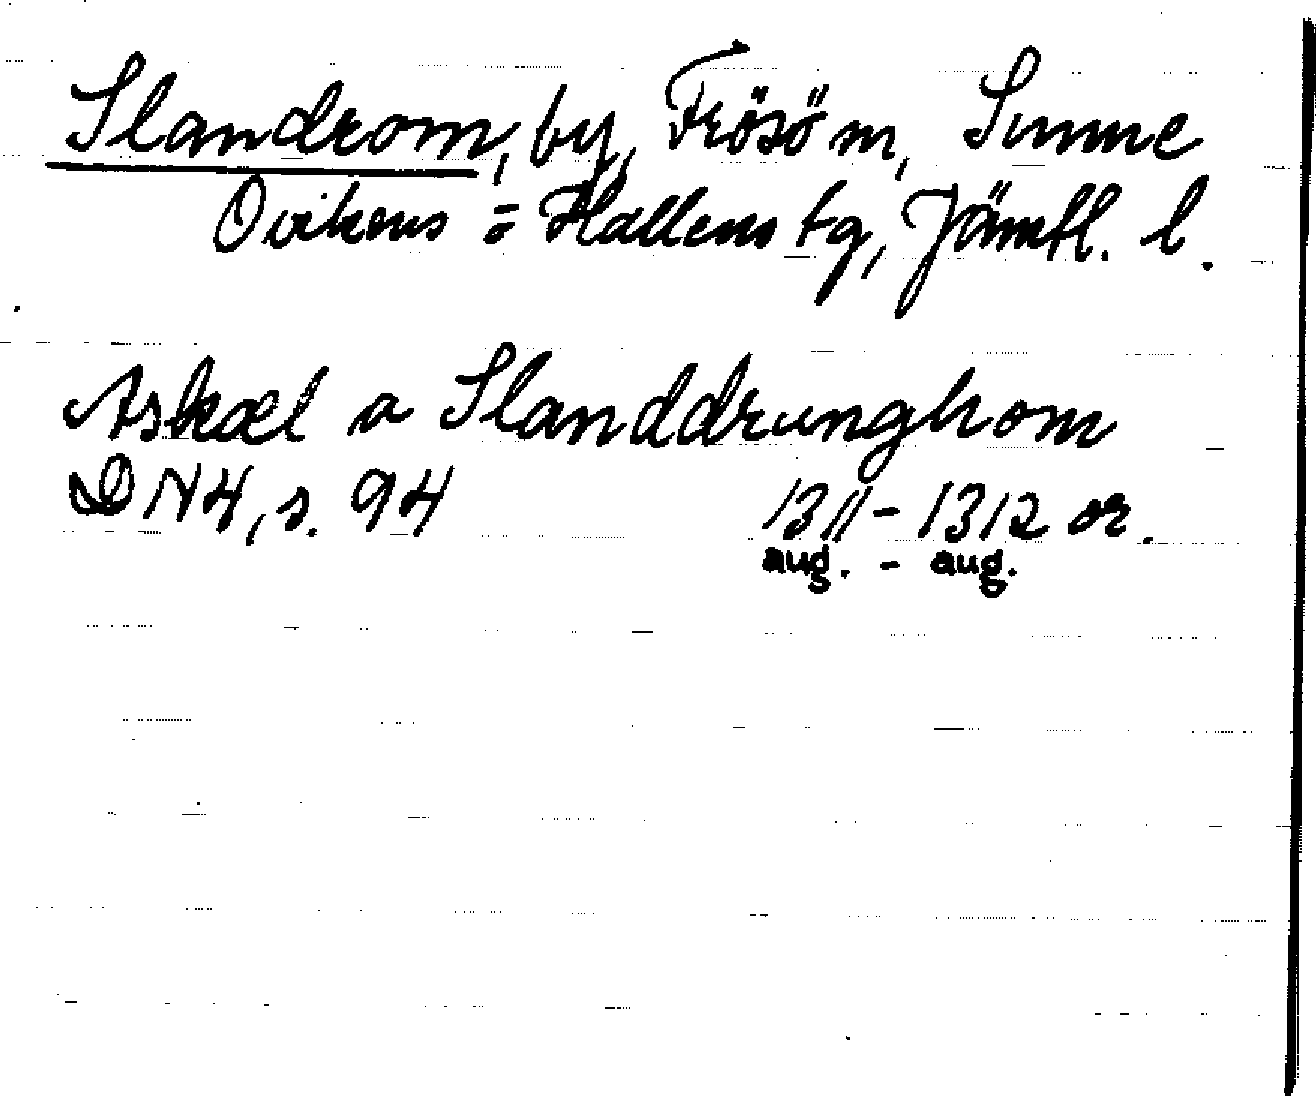 Slandrom, by, Frösö sn, Sunne
Ovikens = Hallens tg, Jämtl. l.
Askæl a Slanddrunghom
DN4, s. 94 1311-1312 or.
aug. - aug.